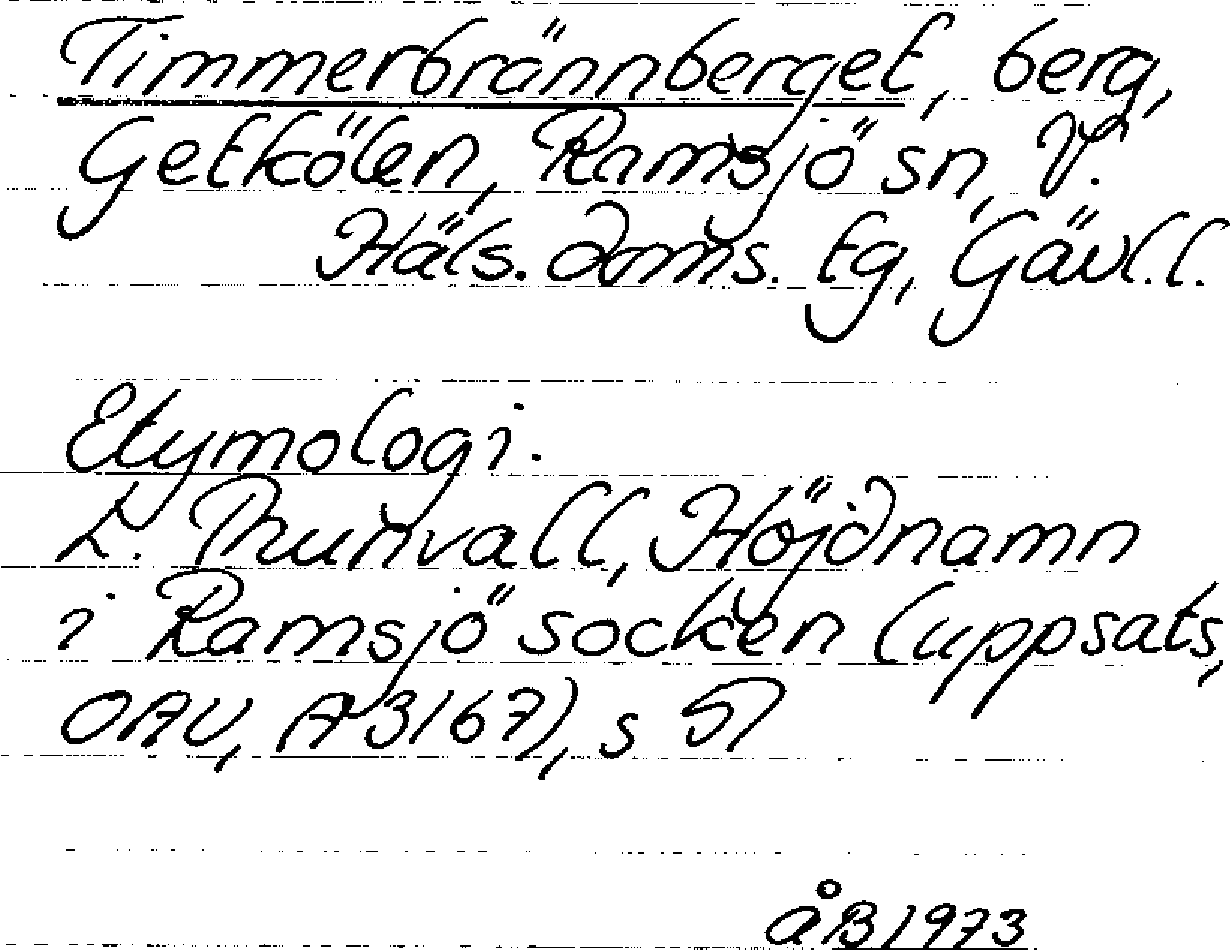 Timmerbrännberget, berg,
Getkölen, Ramsjö sn, V.
Häls. doms. tg, Gävl.l.
Etymologi.
L. Thunvall, Höjdnamn
i Ramsjö socken (uppsats,
OAU, A 3167), s 
ÅB 1973